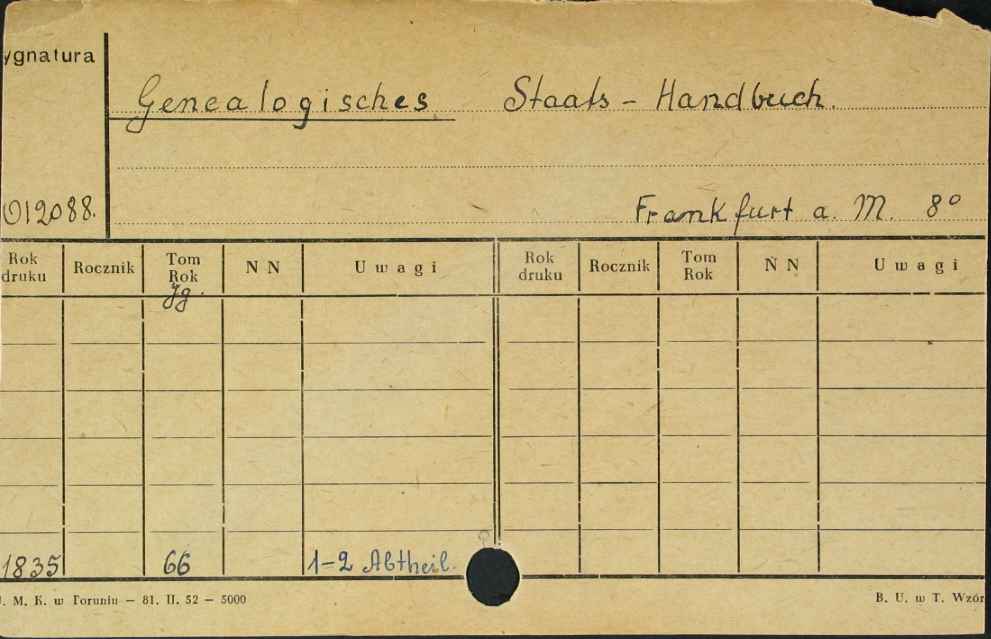 ygnatura
Genealogisches Staats-Handbuch.
012088.
Frankfurt a. M. 8°
Rok druku Rocznik Tom Rok NN Uwagi Rok druku Rocznik Tom Rok NN Uwagi
Jg.
1835 66 1-2 Abtheil.
. M. K. w Toruniu — 81. II. 52 — 5000 B. U. w T. Wzór